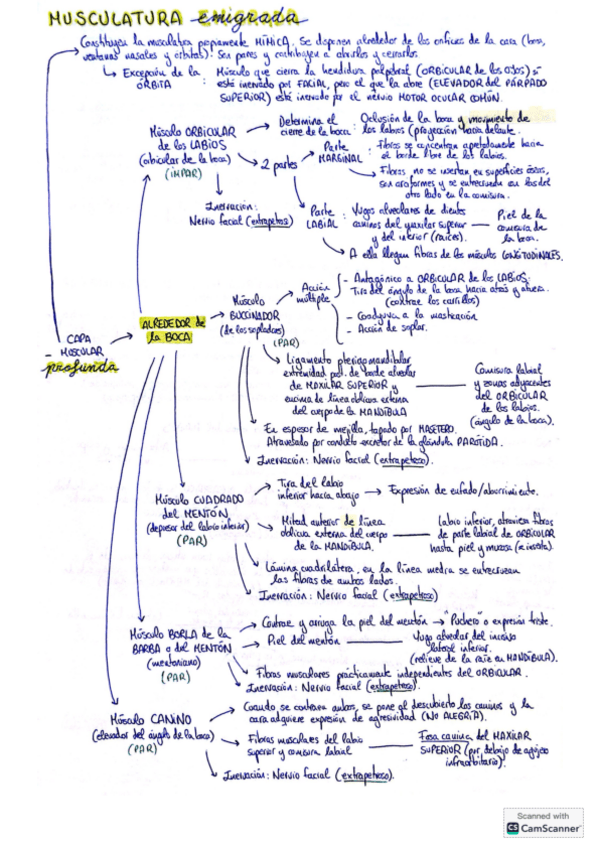 MUSCULATURA emigrada
Constituyen la musculatura propiamente MÍMICA. Se disponen alrededor de los orificios de la cara (boca,
ventanas nasales y órbitas). Son pares y contribuyen a abrirlos y cerrarlos.
Excepción de la ÓRBITA :
Músculo que cierra la hendidura palpebral (ORBICULAR de los OJOS) sí
está inervado por FACIAL, pero el que la abre (ELEVADOR del PÁRPADO
SUPERIOR) está inervado por el nervio MOTOR OCULAR COMÚN.
CAPA
- MUSCULAR
profunda
ALREDEDOR de
la BOCA
Músculo ORBICULAR
de los LABIOS
(orbicular de la boca)
(IMPAR)
Determina el
cierre de la boca :
Oclusión de la boca y movimiento de
los labios (proyección hacia delante.
2 partes
Parte
MARGINAL :
Fibras se concentran apretadamente hacia
el borde libre de los labios.
Fibras no se insertan en superficies óseas,
son arciformes y se entrecruzan con las del
otro lado en la comisura.
Parte
LABIAL :
Yugos alveolares de dientes
caninos del maxilar superior
y del inferior (raíces).
Piel de la
comisura de
la boca.
A ella llegan fibras de los músculos LONGITUDINALES.
Inervación:
Nervio facial (extrapetroso)
Músculo
BUCCINADOR
(de los sopladores)
(PAR)
Acción
múltiple
- Antagónico a ORBICULAR de los LABIOS:
Tira del ángulo de la boca hacia atrás y afuera.
(contrae los carrillos)
- Coadyuva a la masticación
- Acción de soplar.
Ligamento pterigomandibular
extremidad post. de borde alveolar
de MAXILAR SUPERIOR y
encima de línea oblicua externa
del cuerpo de la MANDÍBULA
Comisura labial
y zonas adyacentes
del ORBICULAR
de los labios.
(ángulo de la boca).
En espesor de mejilla, tapado por MASETERO.
Atravesado por conducto excretor de la glándula PARÓTIDA.
Inervación: Nervio facial (extrapetroso).
Músculo CUADRADO
del MENTÓN
(depresor del labio inferior)
(PAR)
Tira del labio
inferior hacia abajo
Expresión de enfado/aburrimiento.
Mitad anterior de línea
oblicua externa del cuerpo
de la MANDÍBULA.
Labio inferior, atraviesa fibras
de parte labial de ORBICULAR
hasta piel y mucosa (se inserta).
Lámina cuadrilátera, en la línea media se entrecruzan
las fibras de ambos lados.
Inervación: Nervio facial (extrapetroso)
Músculo BORLA de la
BARBA o del MENTÓN
(mentoniano)
(PAR)
Contrae y arruga la piel del mentón → "Puchero" o expresión triste.
Piel del mentón
Yugo alveolar del incisivo
lateral inferior.
(relieve de la raíz en MANDÍBULA).
Fibras musculares prácticamente independientes del ORBICULAR.
Inervación: Nervio facial (extrapetroso).
Músculo CANINO
(elevador del ángulo de la boca)
(PAR)
Cuando se contraen ambos, se pone al descubierto los caninos y la
cara adquiere expresión de agresividad (NO ALEGRÍA).
Fibras musculares del labio
superior y comisura labial
Fosa canina del MAXILAR
SUPERIOR (por debajo de agujero
infraorbitario).
Inervación: Nervio facial (extrapetroso).
Scanned with
CS CamScanner